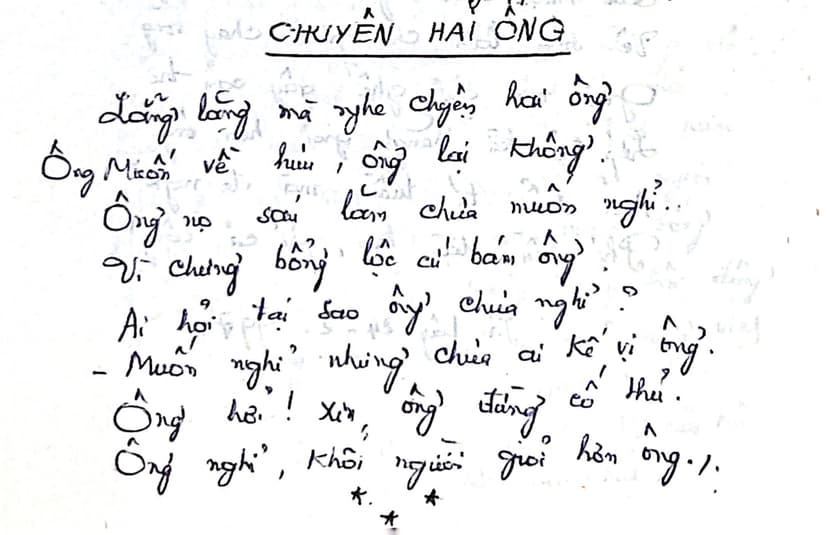 CHUYÊN HAI ÔNG
Lẳng lặng mà nghe chuyện hai ông
Ông Muốn về hưu, ông lại không.
Ông nọ sáu lăm chưa muốn nghỉ..
Vì chưng bổng lộc cứ bám ông.
Ai hỏi tại sao ông chưa nghỉ?
- Muốn nghỉ nhưng chưa ai kế vị ông.
Ông hỡi! Xin, ông đừng cố thủ.
Ông nghỉ, khối người giỏi hơn ông./.